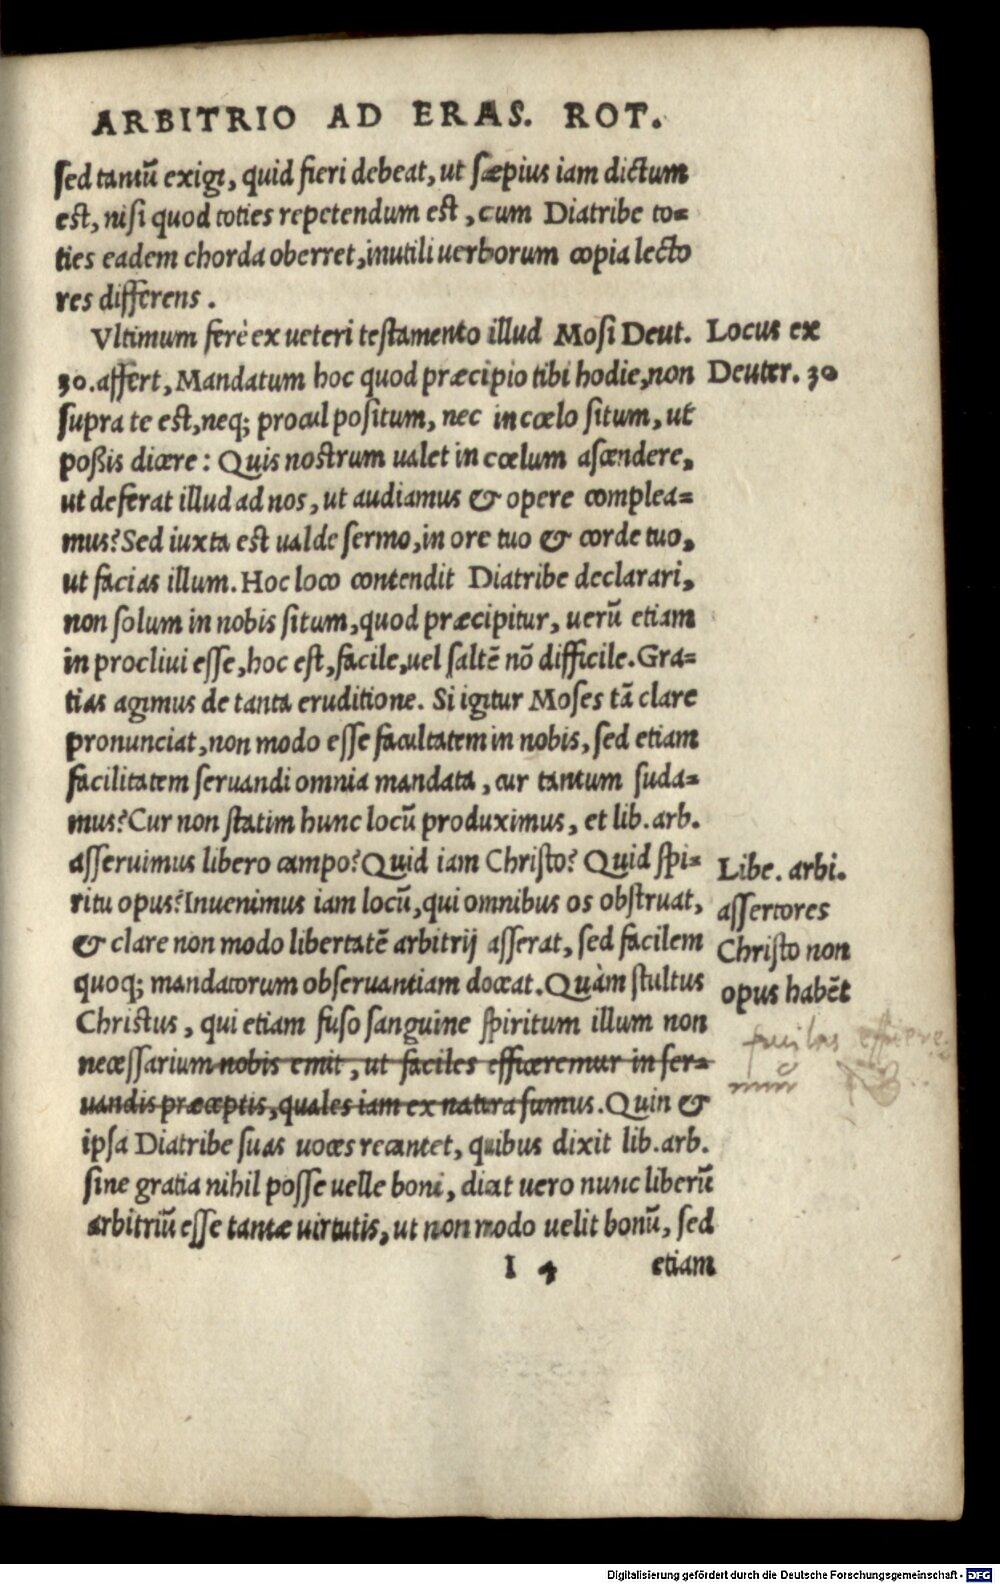 ARBITRIO AD ERAS. ROT.
sed tantũ exigi, quid fieri debeat, ut sæpius iam dictum
est, nisi quod toties repetendum est, cum Diatribe to=
ties eadem chorda oberret, inutili uerborum copia lecto
res differens.
Vltimum ferè ex ueteri testamento illud Mosi Deut.
Locus ex
30. affert, Mandatum hoc quod præcipio tibi hodie, non
Deuter. 30
supra te est, neq; procul positum, nec in cœlo situm, ut
poßis dicere: Quis nostrum ualet in cœlum ascendere,
ut deferat illud ad nos, ut audiamus & opere complea=
mus? Sed iuxta est ualde sermo, in ore tuo & corde tuo,
ut facias illum. Hoc loco contendit Diatribe declarari,
non solum in nobis situm, quod præcipitur, uerũ etiam
in procliui esse, hoc est, facile, uel saltẽ nõ difficile. Gra=
tias agimus de tanta eruditione. Si igitur Moses tã clare
pronunciat, non modo esse facultatem in nobis, sed etiam
facilitatem seruandi omnia mandata, cur tantum suda=
mus? Cur non statim hunc locũ produximus, et lib. arb.
asseruimus libero campo? Quid iam Christo? Quid spi=
Libe. arbi.
ritu opus? Inuenimus iam locũ, qui omnibus os obstruat,
assertores
& clare non modo libertatẽ arbitrij asserat, sed facilem
Christo non
quoq; mandatorum obseruantiam doceat. Quàm stultus
opus habẽt
Christus, qui etiam fuso sanguine spiritum illum non
necessarium nobis emit, ut faciles efficeremur in ser=
uandis præceptis, quales iam ex natura sumus. Quin &
ipsa Diatribe suas uoces recantet, quibus dixit lib. arb.
sine gratia nihil posse uelle boni, dicat uero nunc liberũ
arbitriũ esse tantæ uirtutis, ut non modo uelit bonũ, sed
I 4
etiam
Digitalisierung gefördert durch die Deutsche Forschungsgemeinschaft - DFG